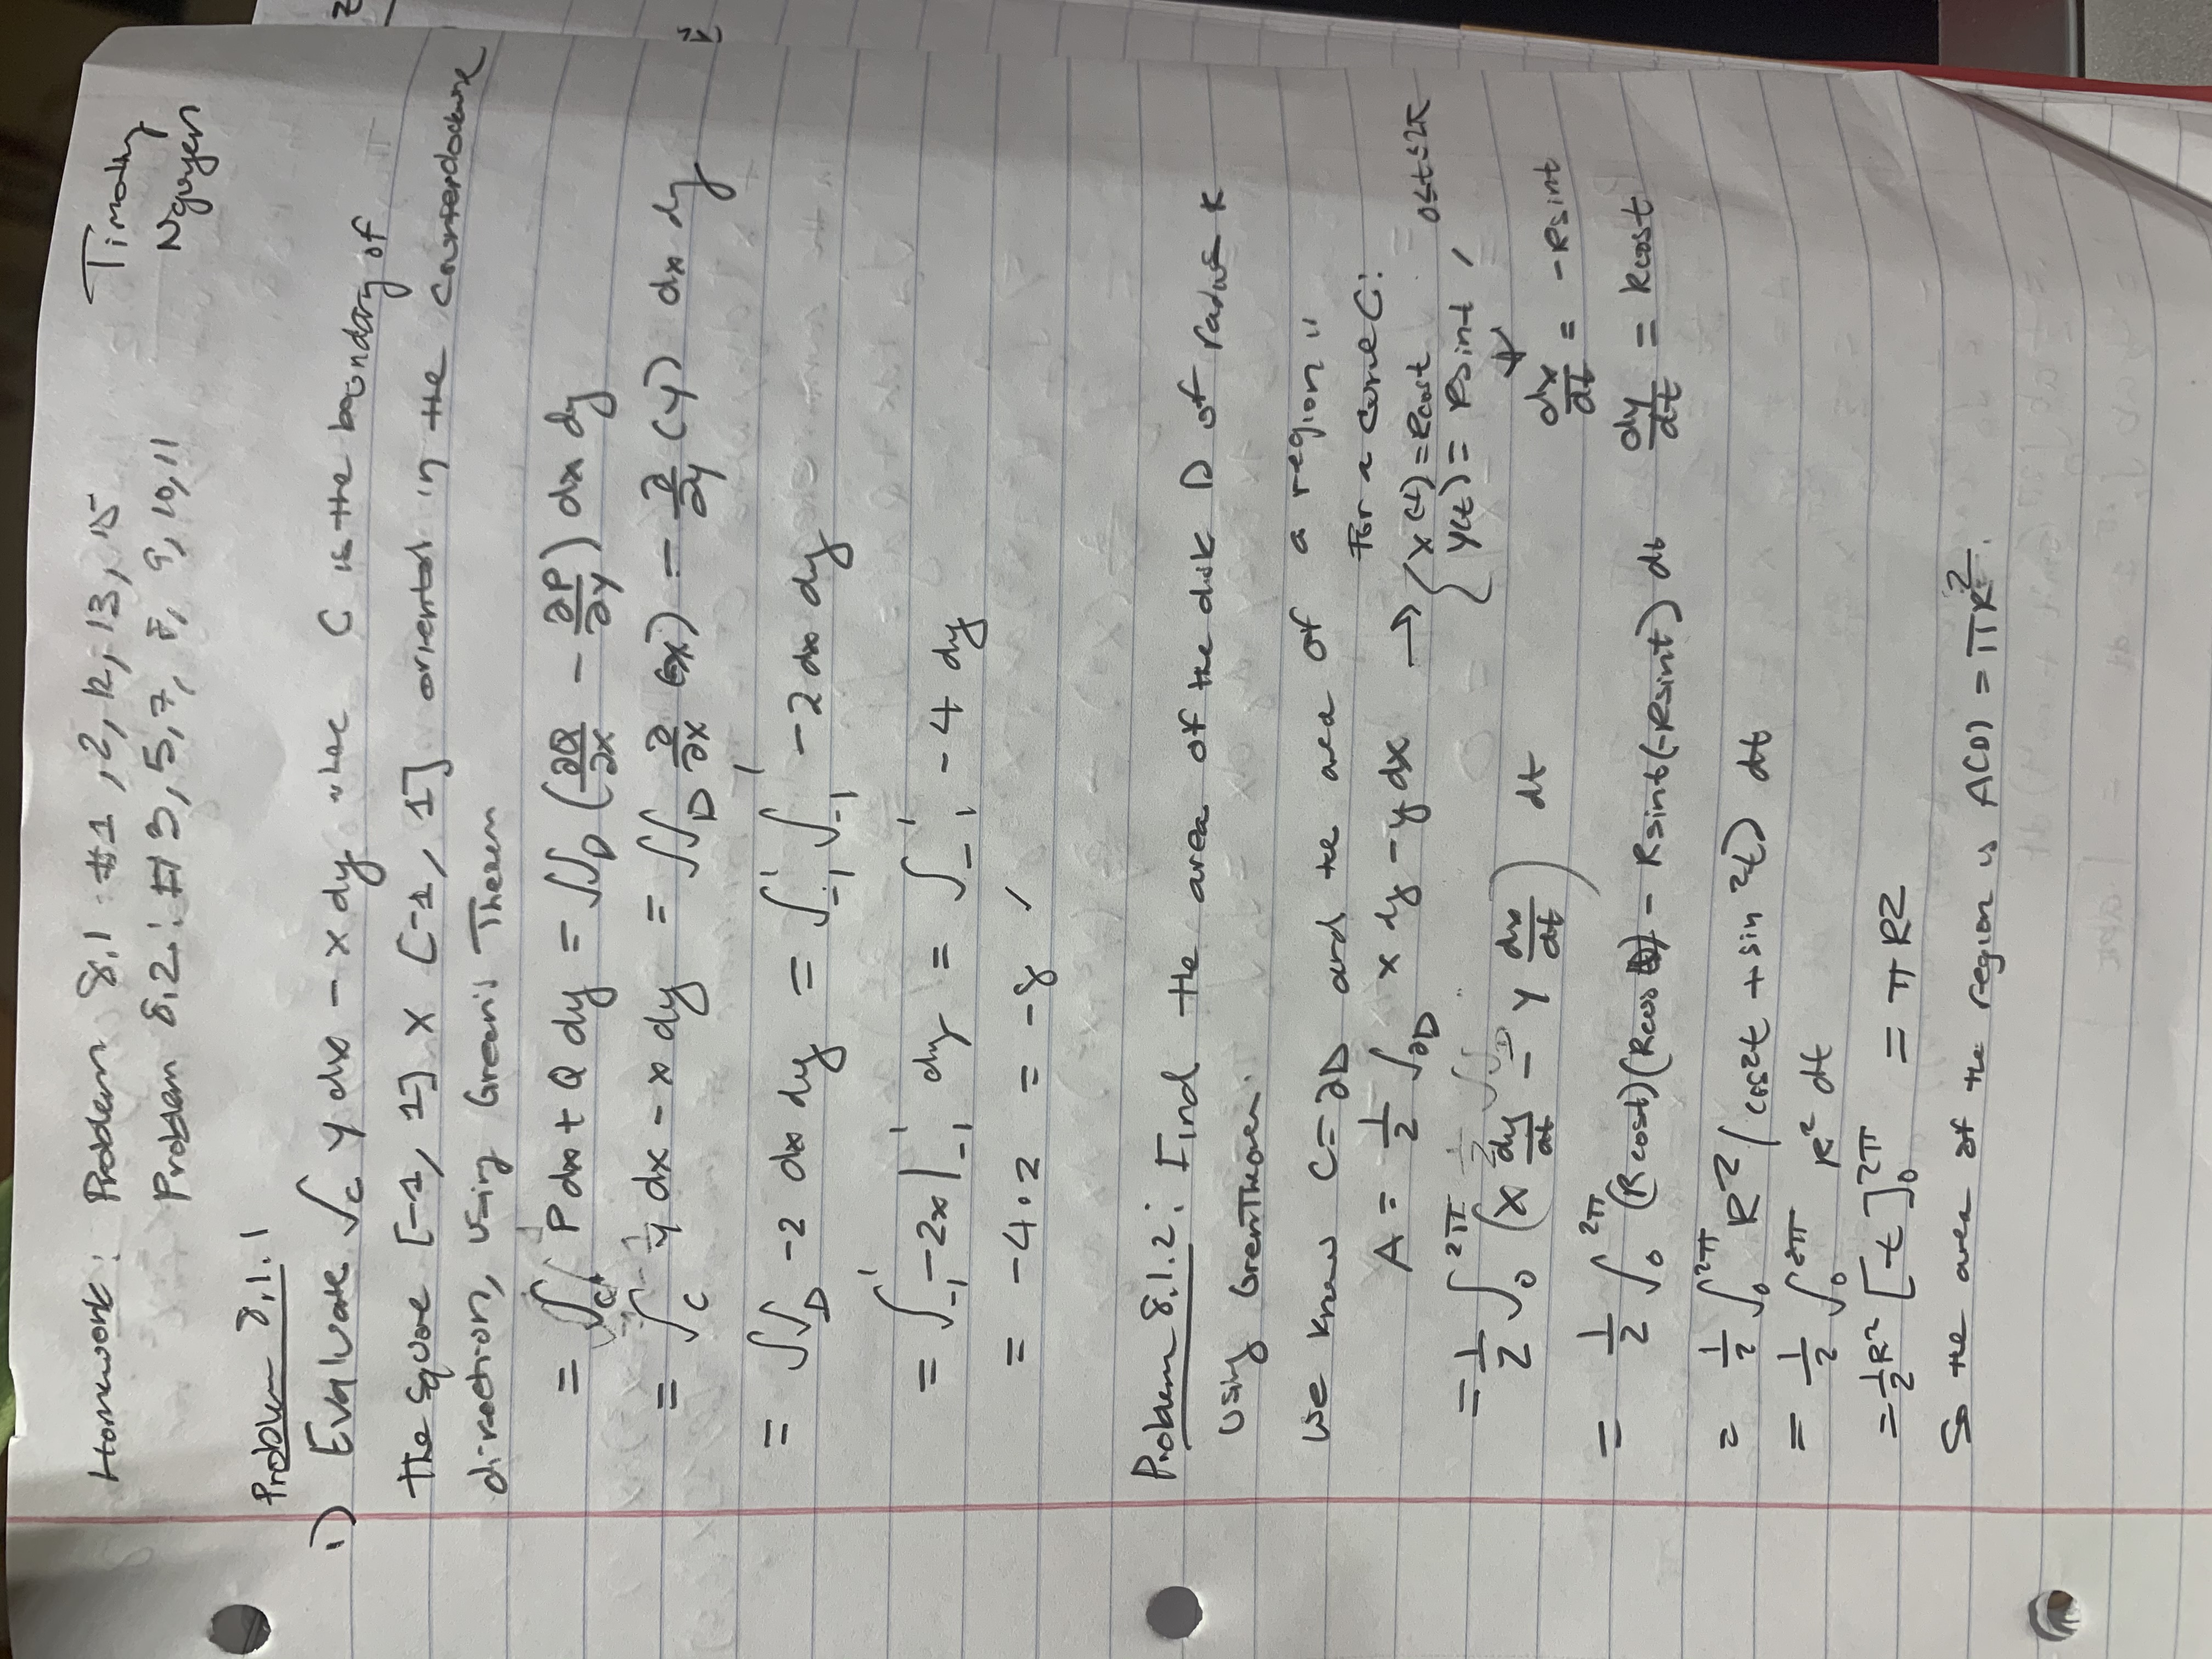 Homework: Problem 8.1 #1, 2, 12, 13, 15
Timothy
Problem 8.2: #3, 5, 7, 8, 9, 10, 11
Nguyen
Problem 8.1.1
1) Evaluate ∫_C y dx - x dy where C is the boundary of
the square [-1, 1] × [-1, 1] oriented in the counterclockwise
direction, using Green's Theorem
= ∫_C P dx + Q dy = ∬_D (∂Q/∂x - ∂P/∂y) dx dy
= ∫_C y dx - x dy = ∬_D ∂/∂x (-x) - ∂/∂y (y) dx dy
= ∬_D -2 dx dy = ∫_{-1}^1 ∫_{-1}^1 -2 dx dy
= ∫_{-1}^1 -2x |_{-1}^1 dy = ∫_{-1}^1 -4 dy
= -4 · 2 = -8 ✓
Problem 8.1.2: Find the area of the disk D of radius R
using Green Theorem.
We know C = ∂D and the area of a region is
For a curve C:
A = 1/2 ∫_{∂D} x dy - y dx → { x(t) = R cos t
y(t) = R sin t, 0 ≤ t ≤ 2π
= 1/2 ∫_0^{2π} (x dy/dt - y dx/dt) dt
↓
dx/dt = -R sin t
= 1/2 ∫_0^{2π} (R cos t)(R cos t) - R sin t (-R sin t) dt
dy/dt = R cos t
= 1/2 ∫_0^{2π} R^2 (cos^2 t + sin^2 t) dt
= 1/2 ∫_0^{2π} R^2 dt
= 1/2 R^2 [t]_0^{2π} = π R2
So the area of the region is A(D) = πR^2.